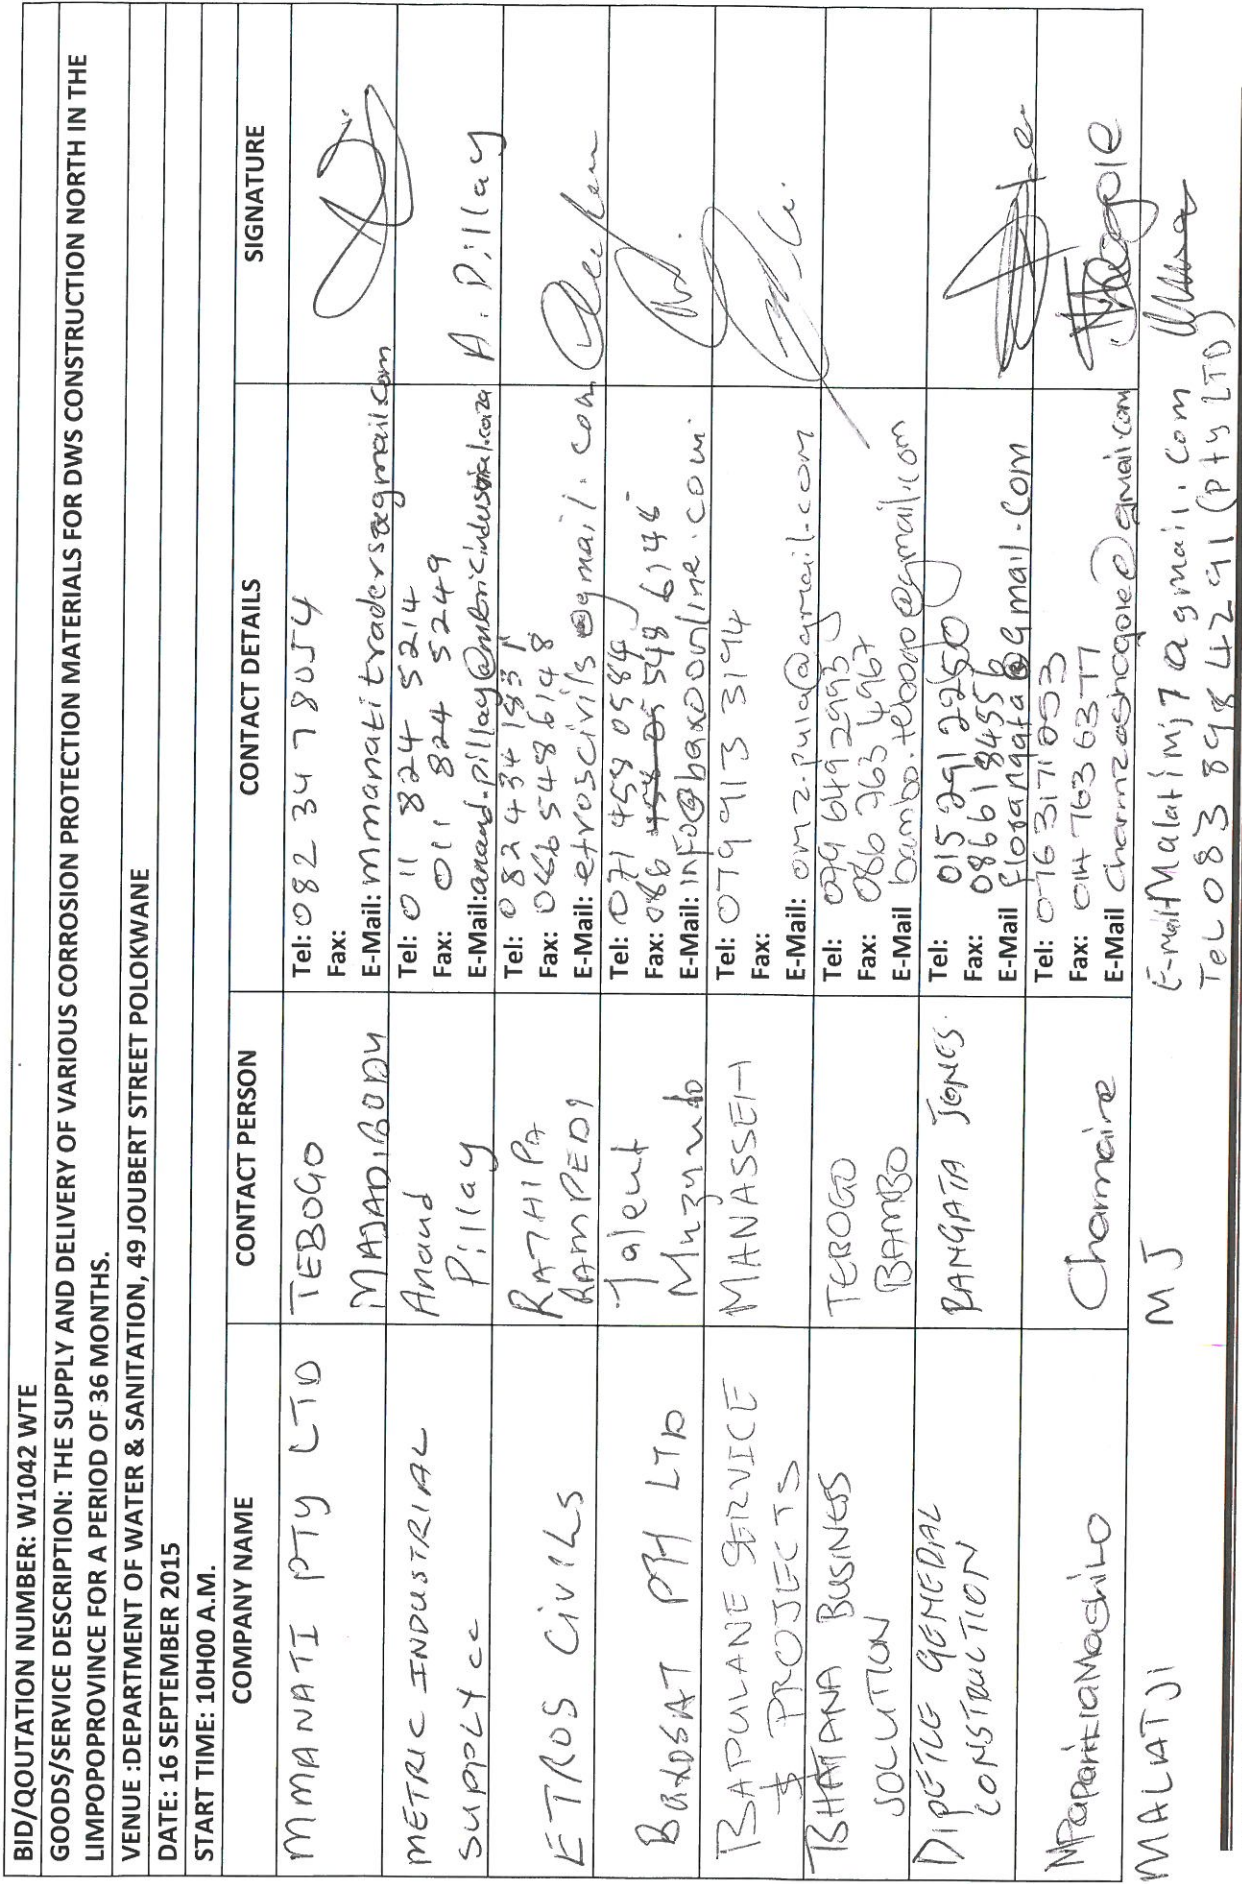 BID/QOUTATION NUMBER: W1042 WTE
GOODS/SERVICE DESCRIPTION: THE SUPPLY AND DELIVERY OF VARIOUS CORROSION PROTECTION MATERIALS FOR DWS CONSTRUCTION NORTH IN THE
LIMPOPOPROVINCE FOR A PERIOD OF 36 MONTHS.
VENUE :DEPARTMENT OF WATER & SANITATION, 49 JOUBERT STREET POLOKWANE
DATE: 16 SEPTEMBER 2015
START TIME: 10H00 A.M.
COMPANY NAME CONTACT PERSON CONTACT DETAILS SIGNATURE
MMANATI PTY LTD TEBOGO Tel: 082 234 78054
Fax:
MAJADIBODU E-Mail: mmanatitraders@gmail.com
METRIC INDUSTRIAL Anand Tel: 011 824 5214
Fax: 011 824 5249
SUPPLY cc Pillay E-Mail: anand.pillay@metricindustrial.co.za A. Pillay
ETROS CIVILS RATHIPA Tel: 082 434 1831
RAMPEDI Fax: 0866548 6148
E-Mail: etroscivils@gmail.com
PTY LTD Talent Tel: 071 458 0584
Munyundo Fax: 086 548 6148
E-Mail: info@baxoonline.com
BAPULANE SERVICE MANASSEH Tel: 079 913 3194
& PROJECTS Fax:
E-Mail: omz.pula@gmail.com
BHATANA BUSINESS TEBOGO Tel: 079 649 2993
SOLUTION BAMBO Fax: 086 763 4967
E-Mail bambo.tebogo@gmail.com
DIPETLE GENERAL RANGATA JONES Tel: 015 291 2250
CONSTRUCTION Fax: 0866189456
E-Mail florangata@gmail.com
Charmaine Tel: 0763171053
Fax: 014 763 6377
E-Mail
MALATJI MJ E-mail Malatjimj7@gmail.com
Tel 083 898 4291 (Pty LTD)